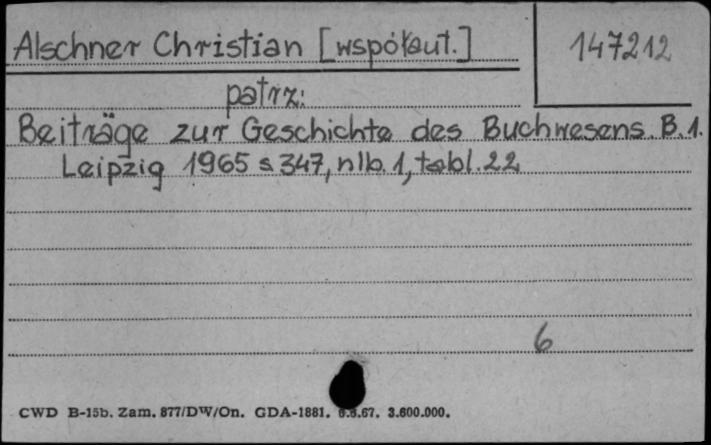 Alschner Christian [współaut.]
147212
patrz:
Beiträge zur Geschichte des Buchwesens. B. 1.
Leipzig 1965 s 347, nlb. 1, tabl. 22
6
CWD B-15b. Zam. 877/DW/On. GDA-1881. 6.6.67. 3.600.000.